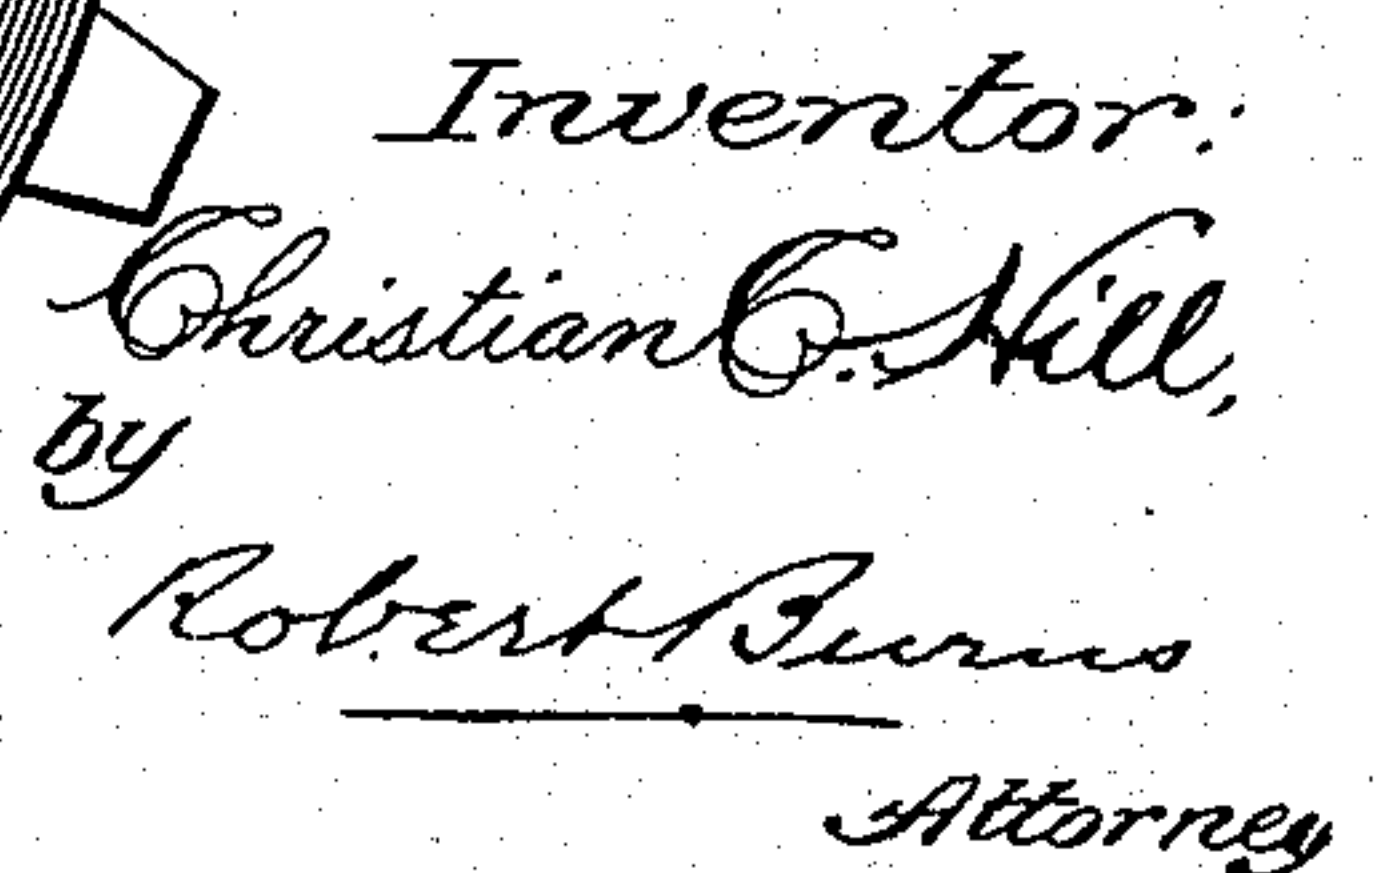 Inventor:
Christian C. Hill,
by
Robert Burns
Attorney